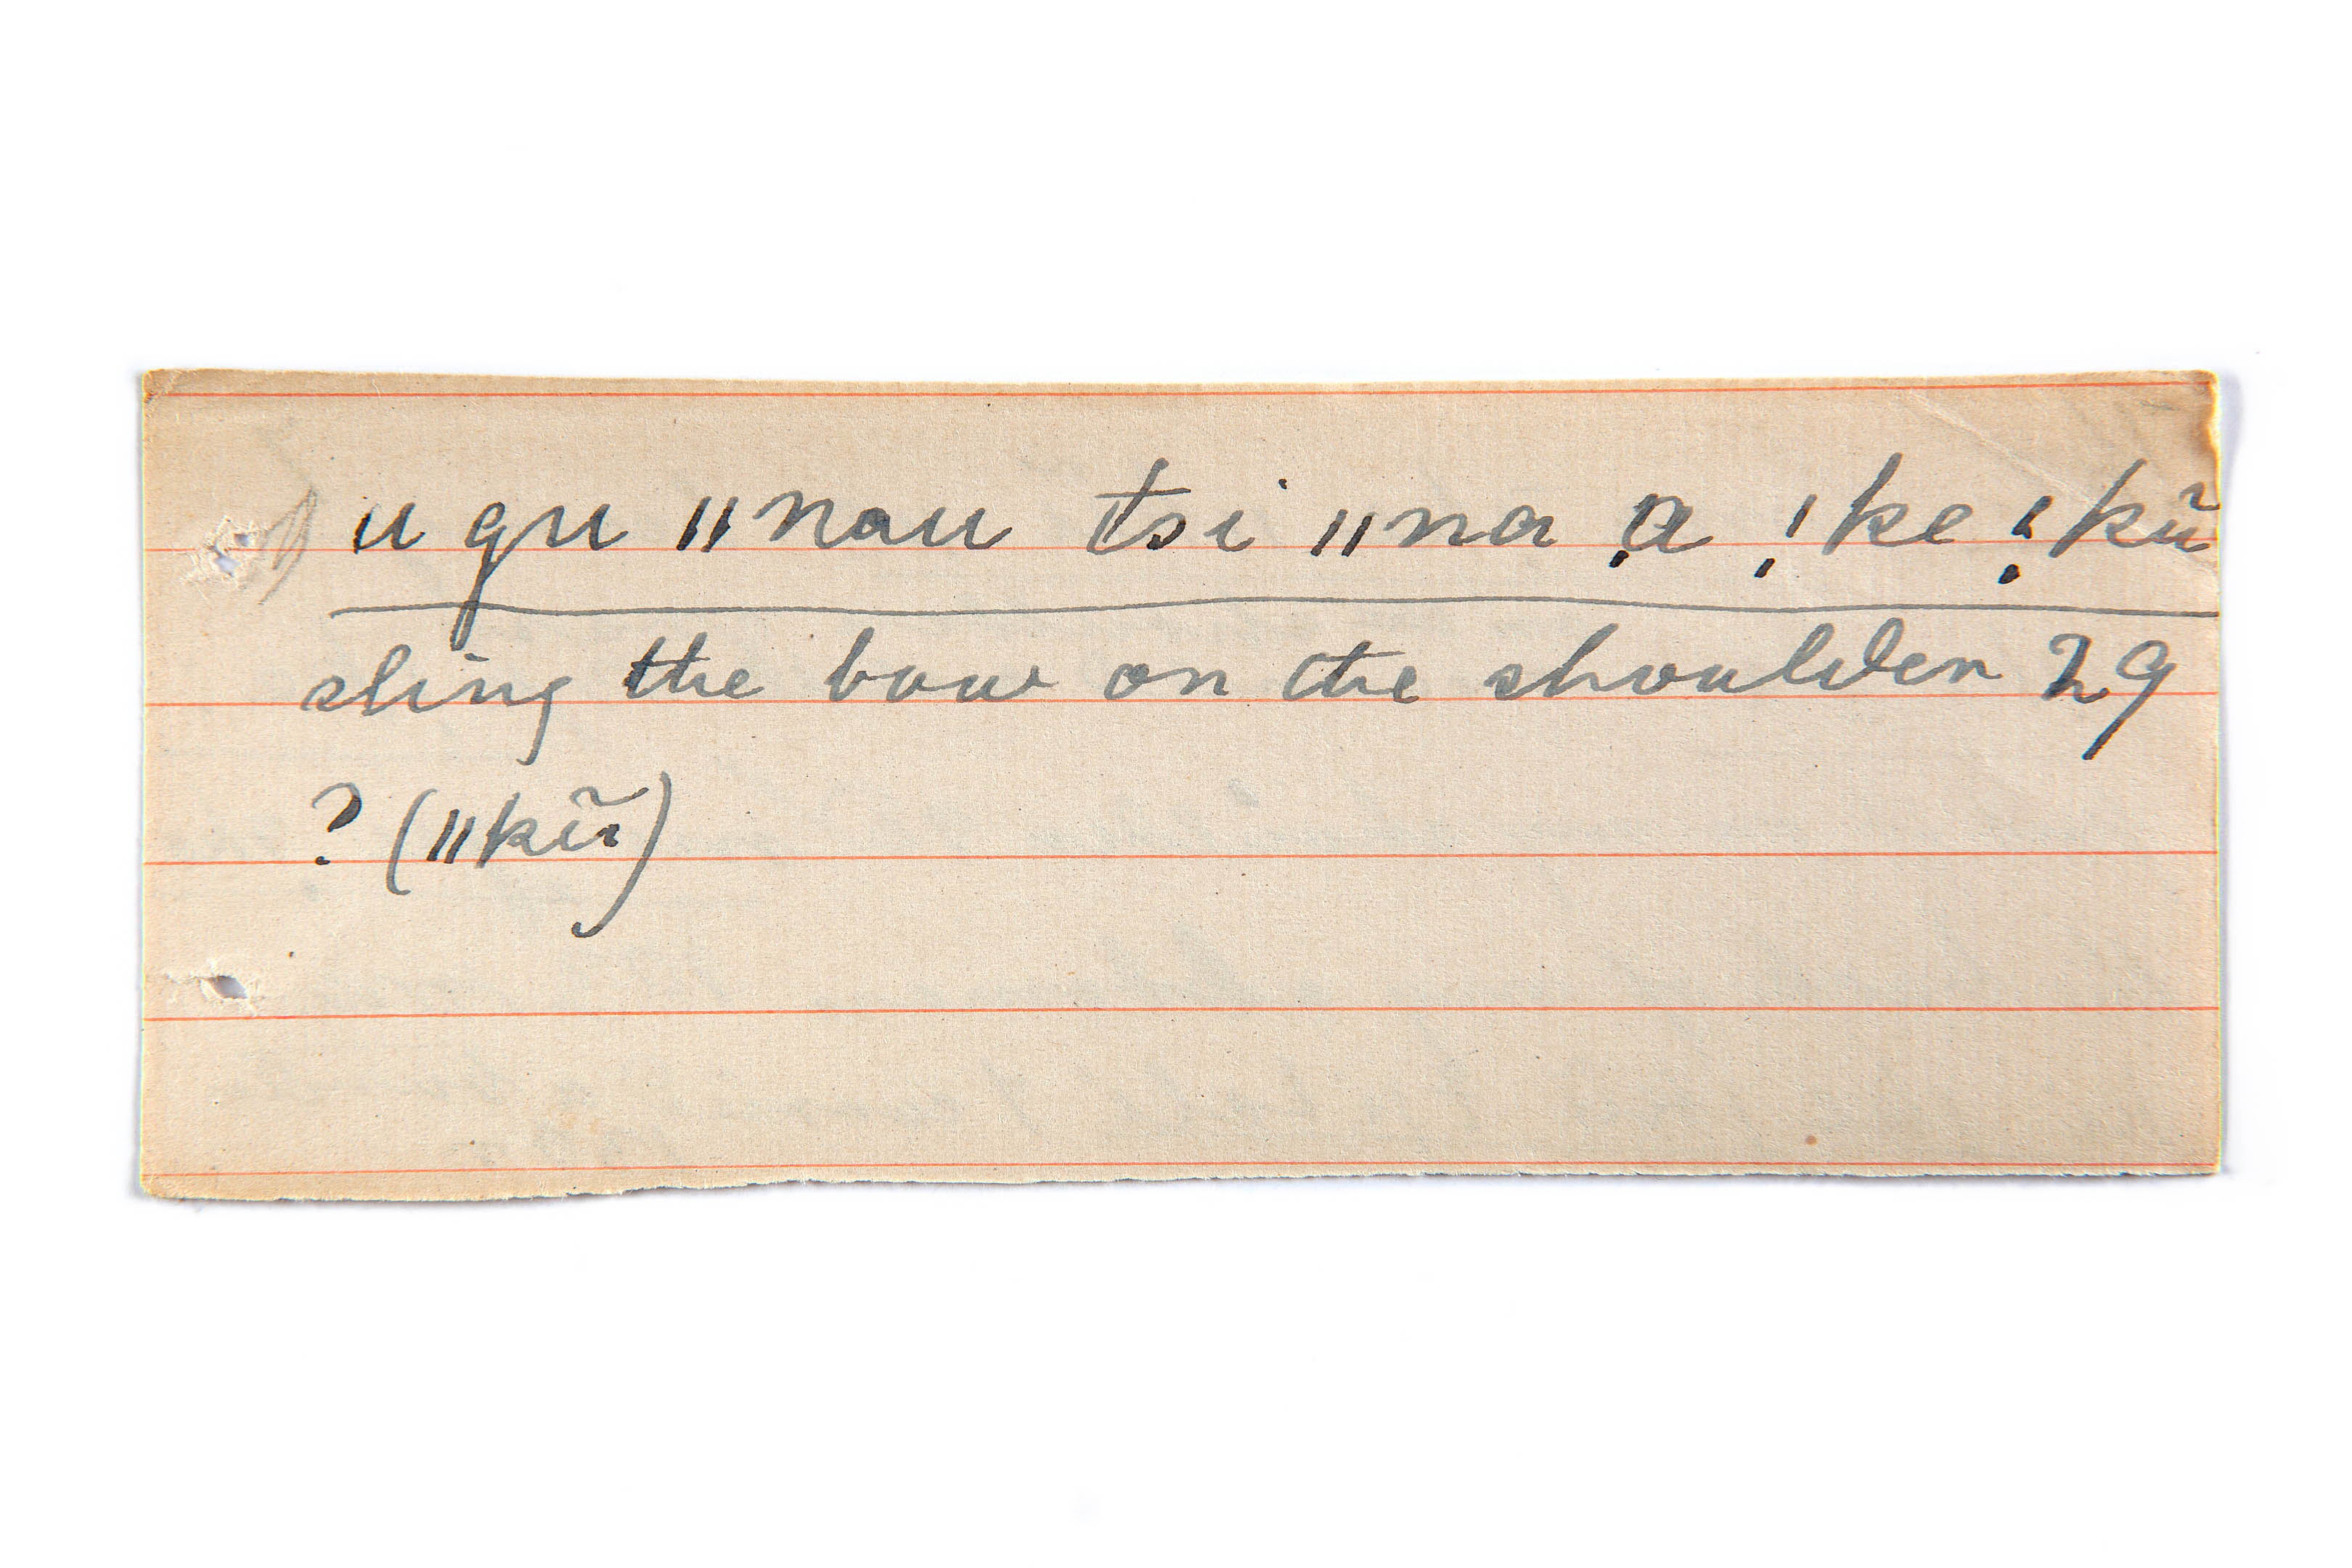 u gu ǁnau tsi ǁna ạ !ke !kũ
sling the bow on the shoulder 29
? (ǁkũ)